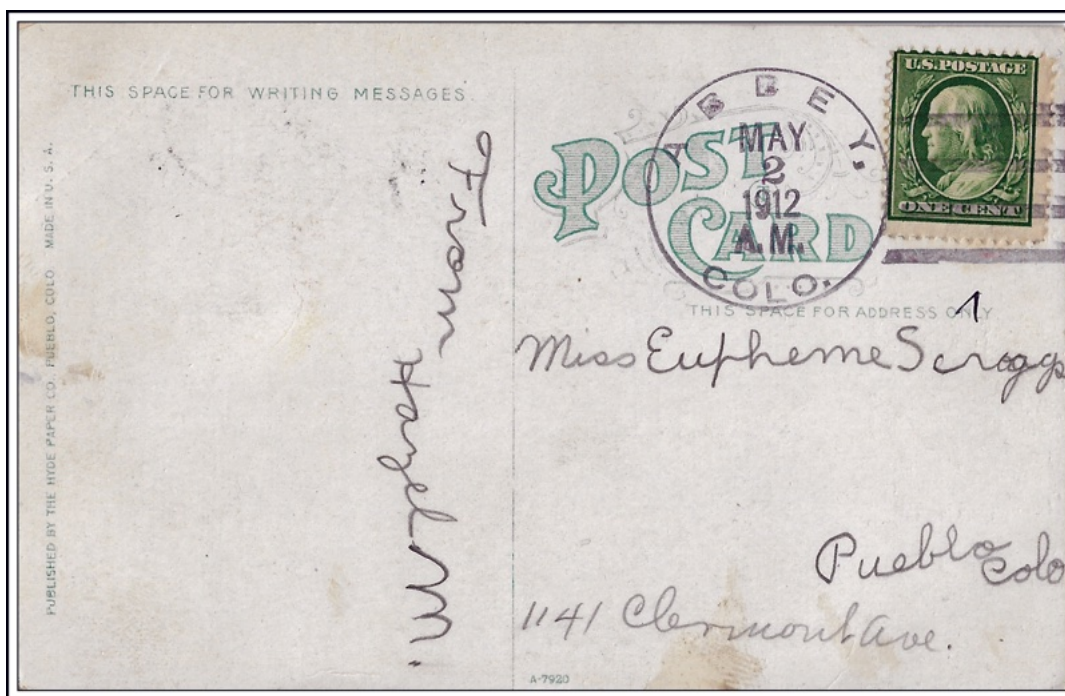 THIS SPACE FOR WRITING MESSAGES
From
PUBLISHED BY THE HYDE PAPER CO. PUEBLO, COLO MADE IN U. S. A.
POST CARD
ABBEY,
MAY
2
1912
A.M.
COLO.
U.S. POSTAGE
ONE CENT
THIS SPACE FOR ADDRESS ONLY
1
Miss Eupheme Scroggs
Pueblo
Colo
1141 Clermont Ave.
A-7920